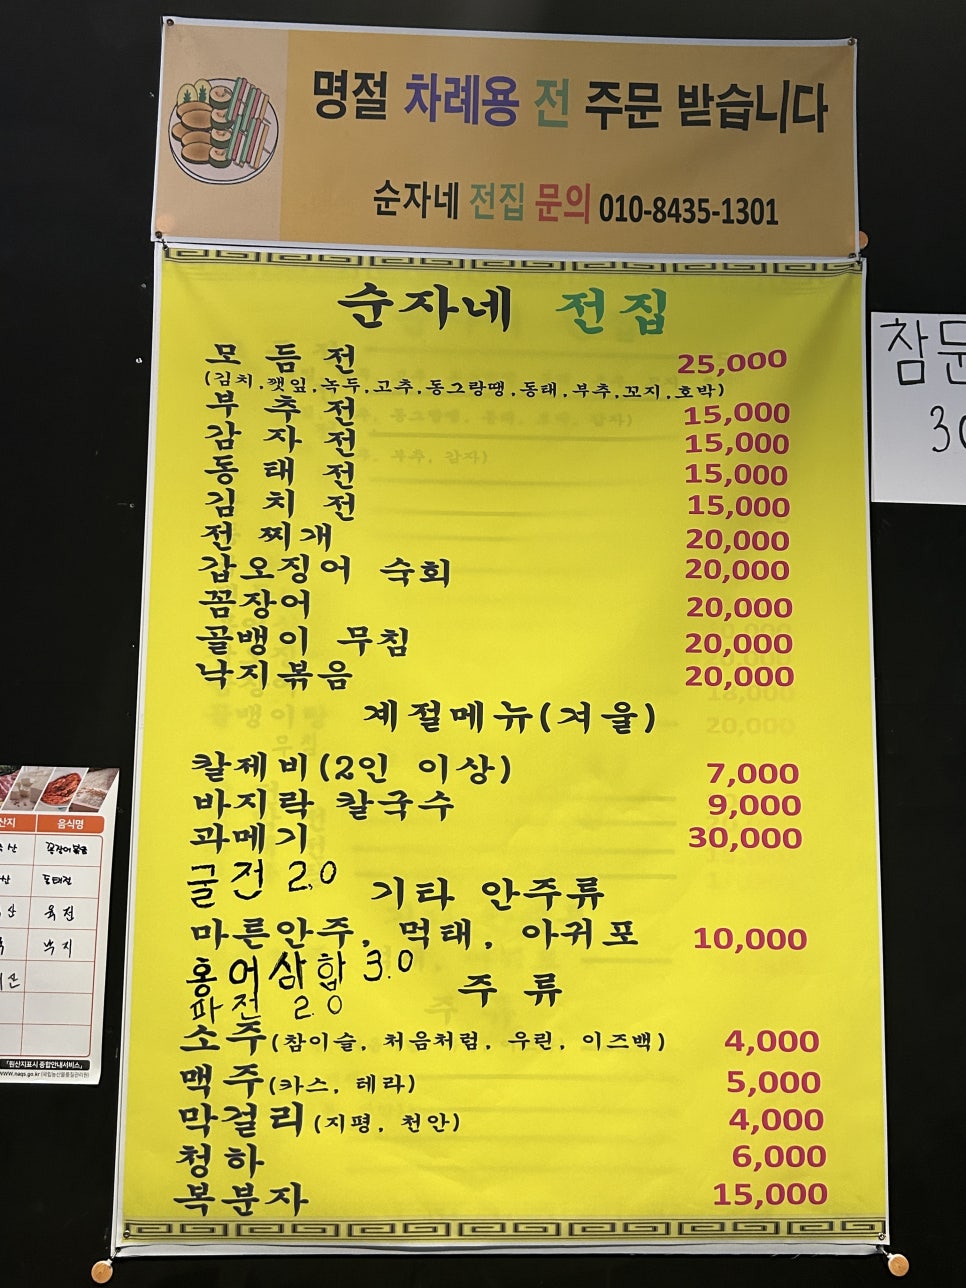 명절 차례용 전 주문 받습니다
순자네 전집 문의 010-8435-1301
순자네 전집
모듬전 25,000
(김치,깻잎,녹두,고추,동그랑땡,동태,부추,꼬지,호박)
부추전 15,000
감자전 15,000
동태전 15,000
김치전 15,000
전찌개 20,000
갑오징어 숙회 20,000
꼼장어 20,000
골뱅이 무침 20,000
낙지볶음 20,000
계절메뉴(겨울)
칼제비(2인 이상) 7,000
바지락 칼국수 9,000
과메기 30,000
굴전 2.0
기타 안주류
마른안주, 먹태, 아귀포 10,000
홍어삼합 3.0
파전 2.0
주류
소주(참이슬, 처음처럼, 우린, 이즈백) 4,000
맥주(카스, 테라) 5,000
막걸리(지평, 천안) 4,000
청하 6,000
복분자 15,000
참문
30
산지 음식명
산 꼼장어볶음
산 동태전
산 육전
낙지
산
「원산지표시 종합안내서비스」
www.naqs.go.kr (국립농산물품질관리원)